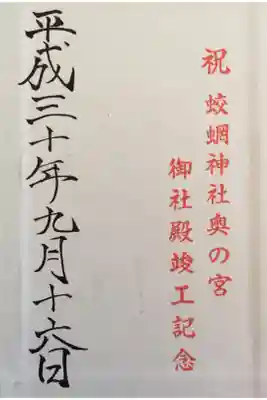 祝 蛟蝄神社奥の宮
御社殿竣工記念
平成三十年九月十六日